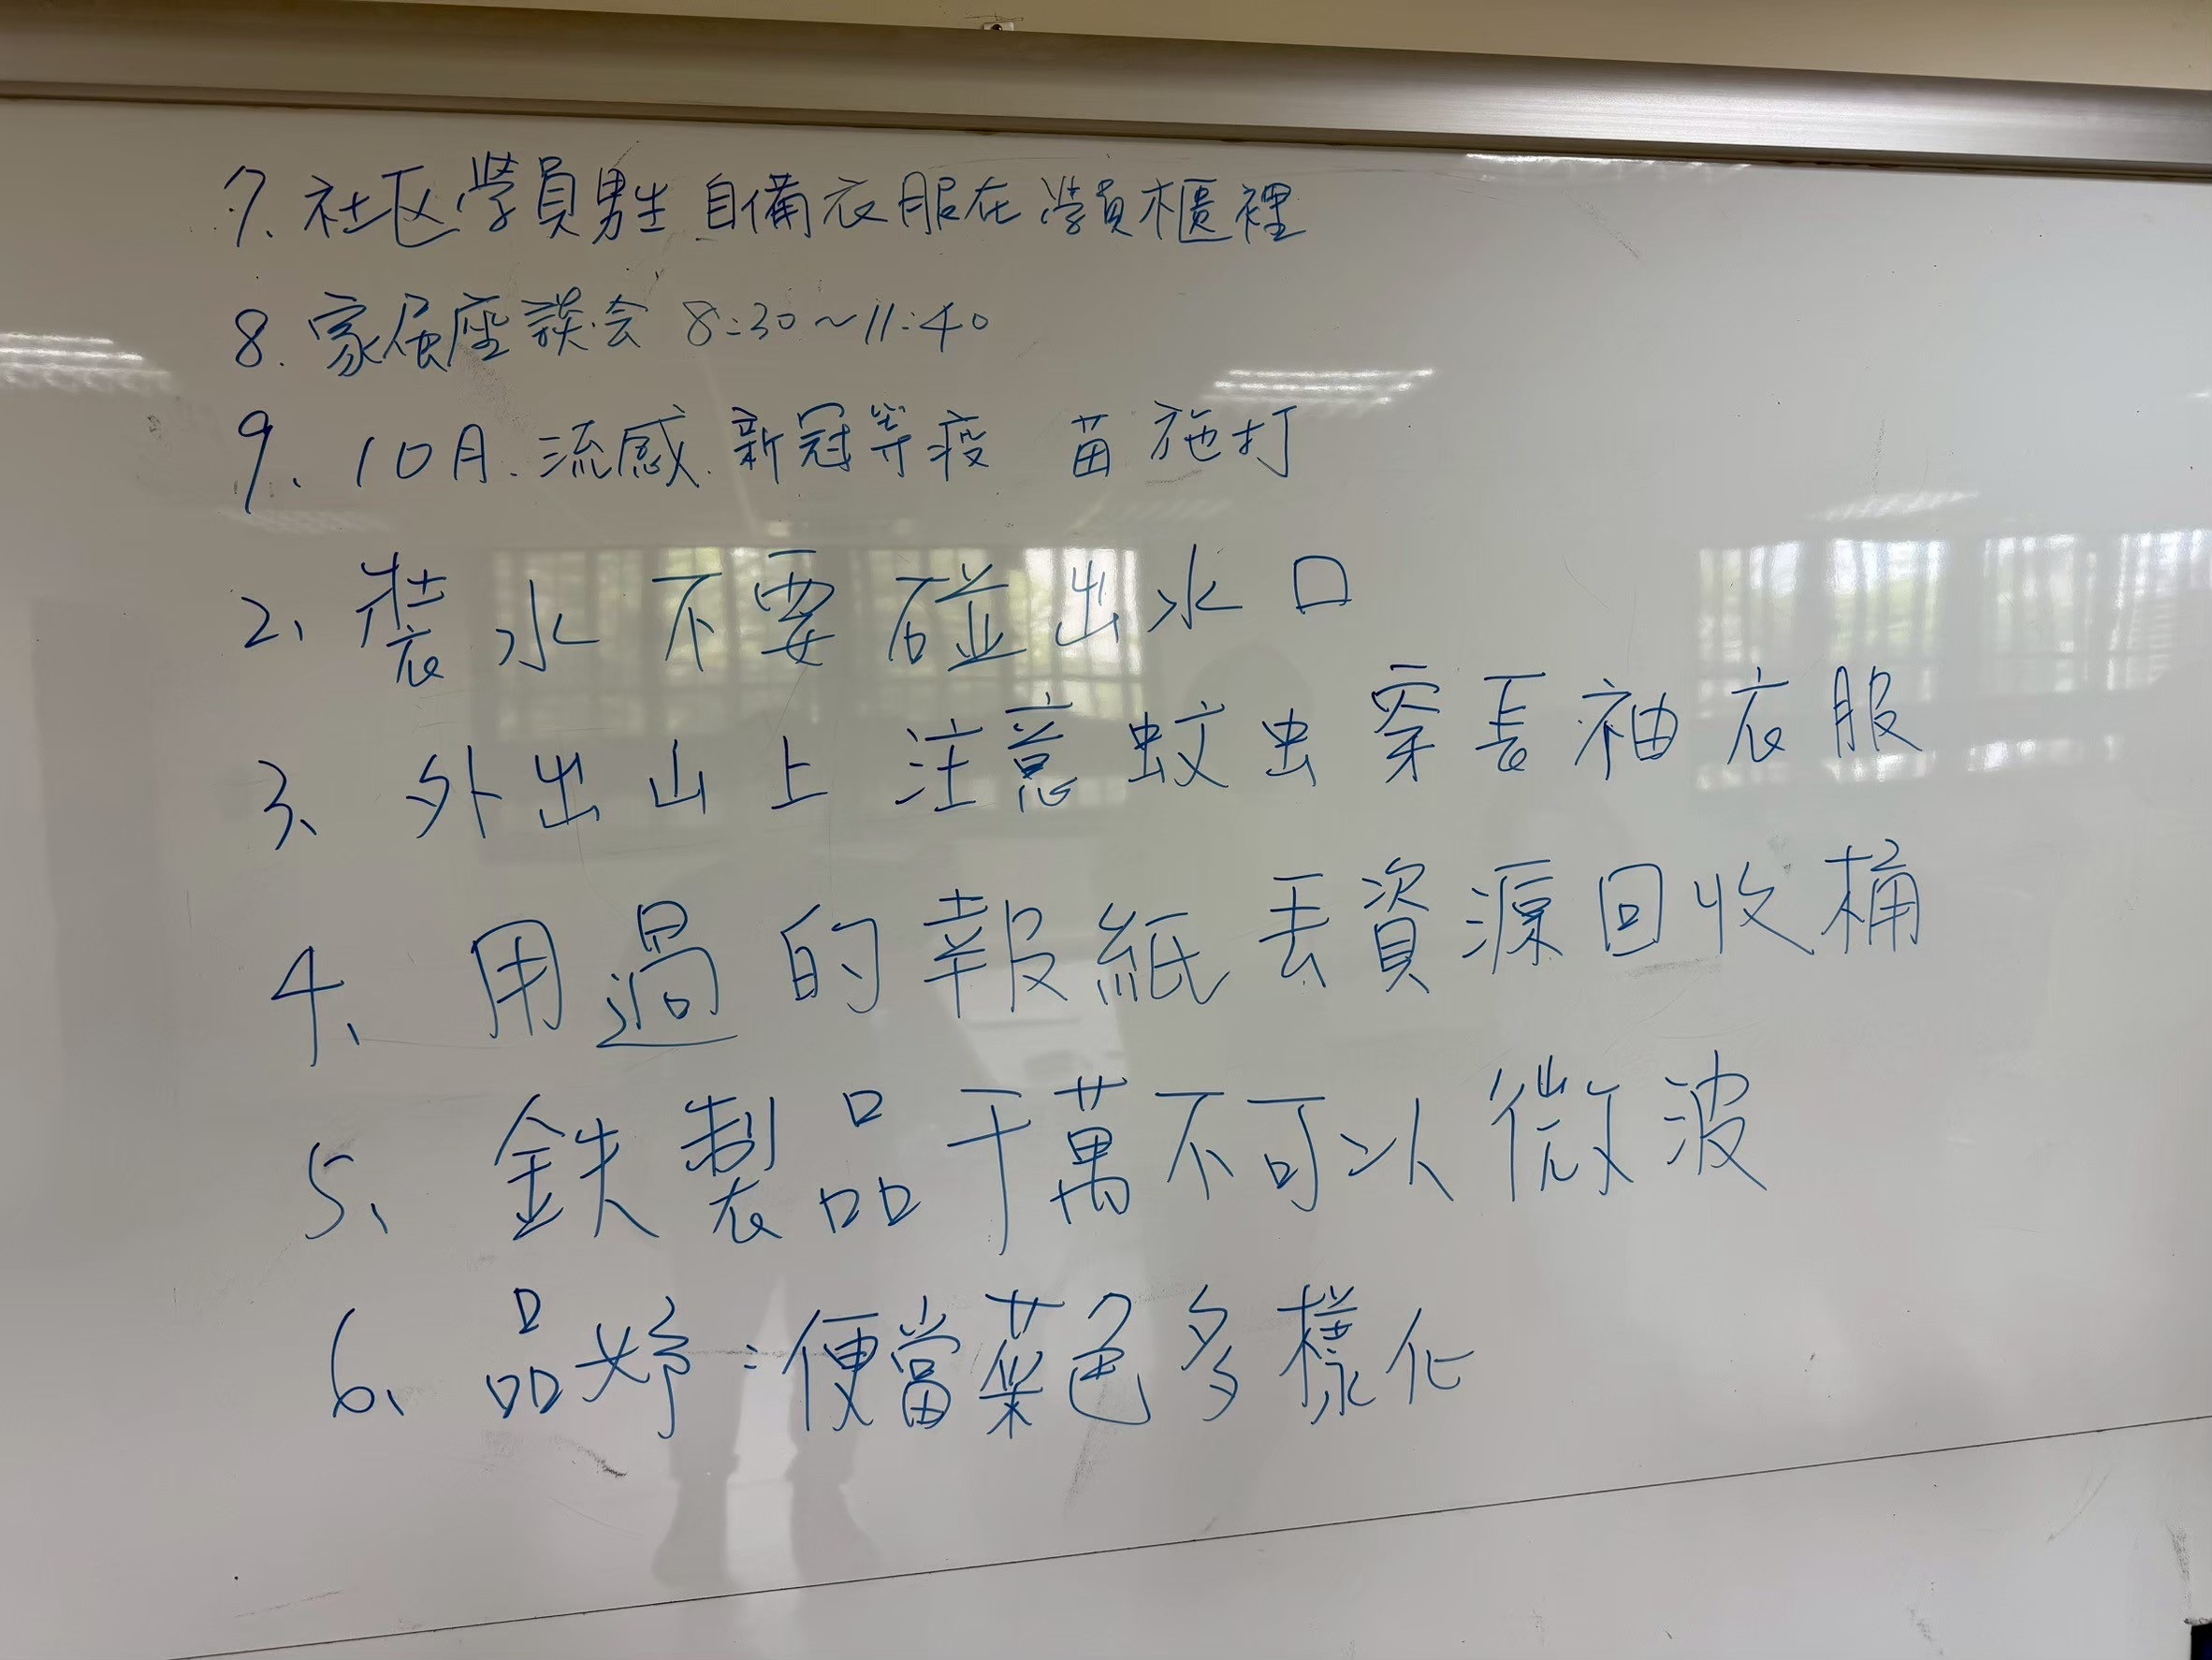 7. 社区學員男生自備衣服在學員櫃裡
8. 家属座談会 8:30~11:40
9. 10月.流感.新冠等疫 苗施打
2、裝水不要碰出水口
3、外出山上注意蚊虫穿長袖衣服
4、用過的報紙丟資源回收桶
5、鉄製品千萬不可以微波
6、品妤:便當菜色多樣化